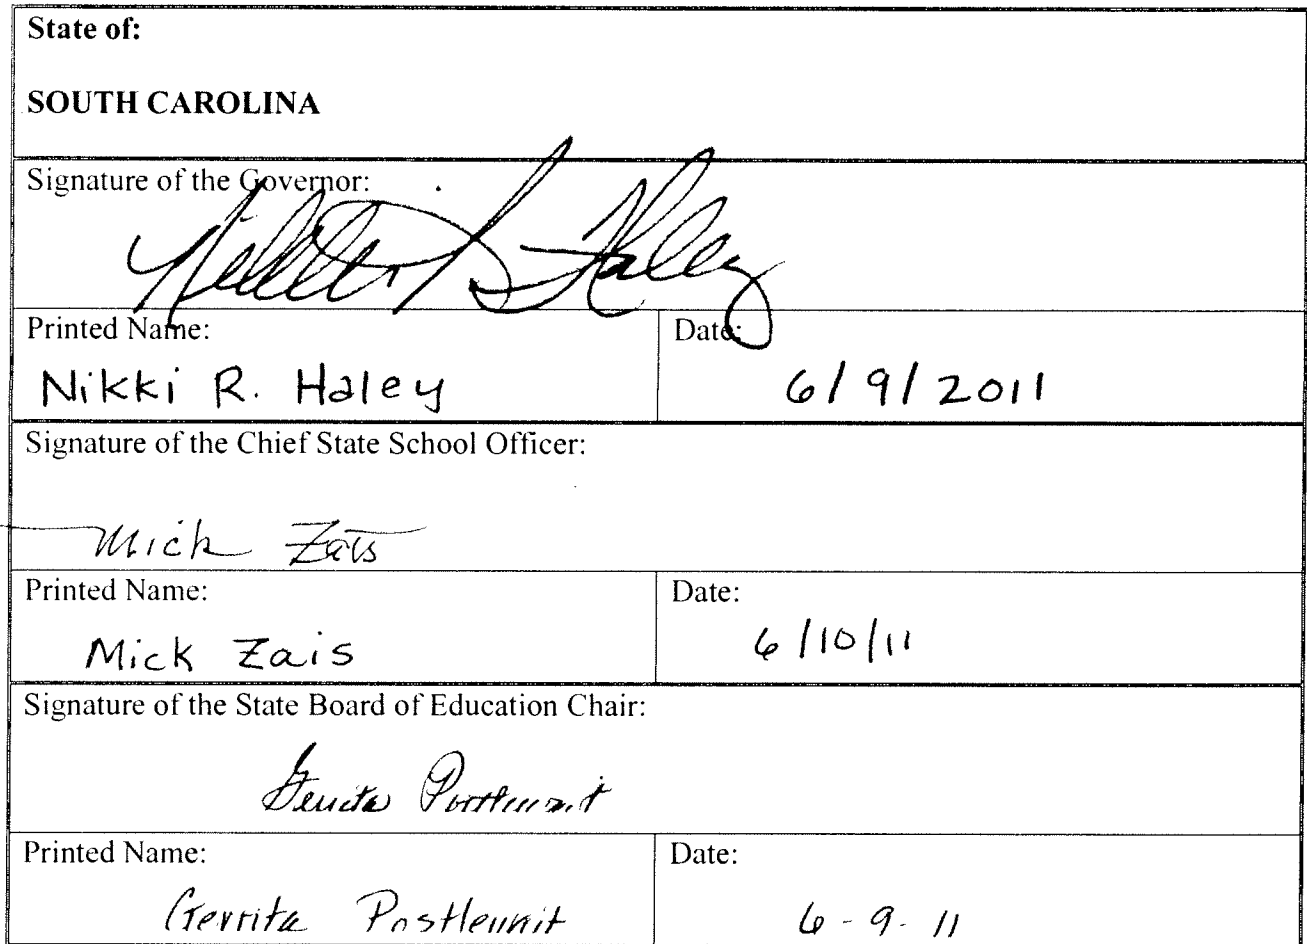 State of:
SOUTH CAROLINA
Signature of the Governor:
Nikki R. Haley
Printed Name:
Date:
Nikki R. Haley
6/9/2011
Signature of the Chief State School Officer:
Mick Zais
Printed Name:
Date:
Mick Zais
6/10/11
Signature of the State Board of Education Chair:
Gerrita Postlewait
Printed Name:
Date:
Gerrita Postlewait
6-9-11